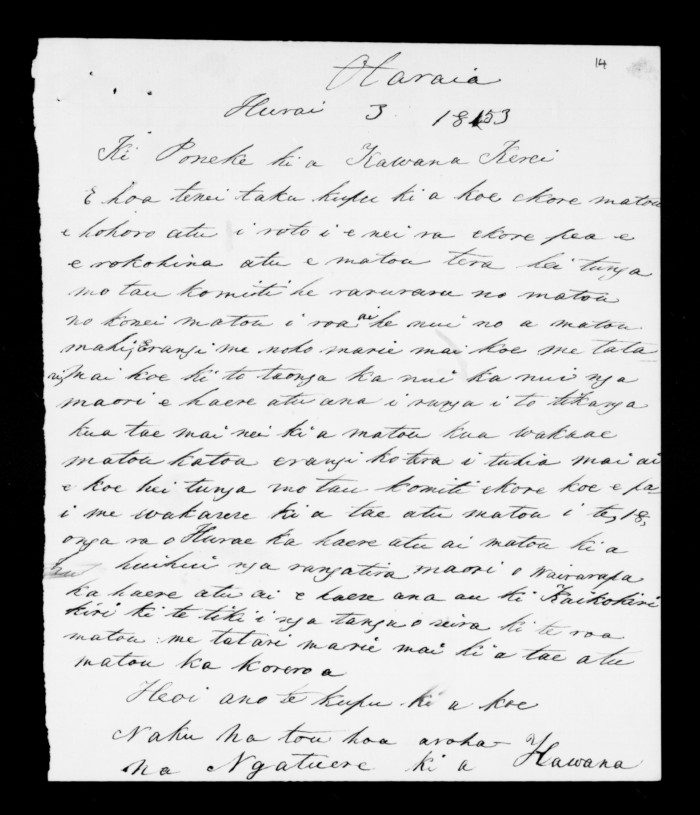 14
Otaraia
Hurai 3 1853
Ki Poneke ki a Kawana Kerei
E hoa tenei taku kupu ki a koe ekore matou
e hohoro atu i roto i e nei ra ekore pea e
e rokohina atu e matou tera hei tunga
mo tau komiti he raruraru no matou
no konei matou i roa ai he nui no a matou
mahi, Erangi me noho marie mai koe me tata
ri mai koe ki to taonga ka nui ka nui nga
maori e haere atu ana i runga i to tikanga
kua tae mai nei ki a matou kua wakaae
matou katoa erangi ko tera i tuhia mai ai
e koe hei tunga mo tau komiti ekore koe e pa
i me wakarere ki a tae atu matou i te, 18,
onga ra o Hurae ka haere atu ai matou ki a
huihui nga rangatira maori o Wairarapa
ka haere atu ai e haere ana au ki Kaikokiri
kiri ki te tiki i nga tangu o reira ki te roa
matou: me tatari marie mai ki a tae atu
matou ka korero a
Heoi ano te kupu ki a koe
Naku na tou hoa aroha
na Ngatuere ki a Kawana